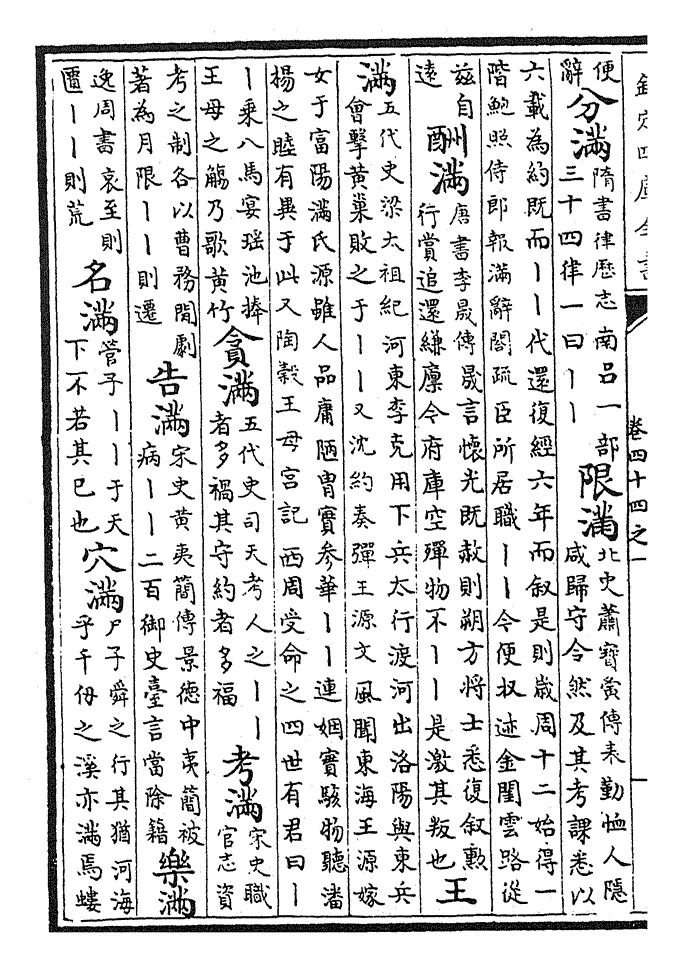 欽定四庫全書
卷四十四之一
便
辭
分滿
隋書律歷志南呂一部
三十四律一曰丨丨
限滿
北史蕭寶夤傳表勤恤人隱
咸歸守令然及其考課悉以
六載為約既而丨丨代還復經六年而叙是則歲周十二始得一
階鮑照侍郎報滿辭閤疏臣所居職丨丨今便収迹金閨雲路從
兹自
遠
酬滿
唐書李晟傳晟言懷光既赦則朔方將士悉復叙勲
行賞追還縑廩今府庫空殫物不丨丨是激其叛也
王
滿
五代史梁太祖紀河東李克用下兵太行渡河出洛陽與東兵
會擊黄巢敗之于丨丨又沈約奏彈王源文風聞東海王源嫁
女于富陽滿氏源雖人品庸陋冑實參華丨丨連姻實駭物聽潘
揚之睦有異于此又陶穀王母宮記西周受命之四世有君曰丨
丨乘八馬宴瑶池捧
王母之觴乃歌黄竹
貪滿
五代史司天考人之丨丨
者多禍其守約者多福
考滿
宋史職
官志資
考之制各以曹務閒劇
著為月限丨丨則遷
告滿
宋史黄夷簡傳景德中夷簡被
病丨丨二百御史臺言當除籍
樂滿
逸周書哀至則
匱丨丨則荒
名滿
管子丨丨于天
下不若其巳也
穴滿
尸子舜之行其猶河海
乎千仞之溪亦滿焉螻